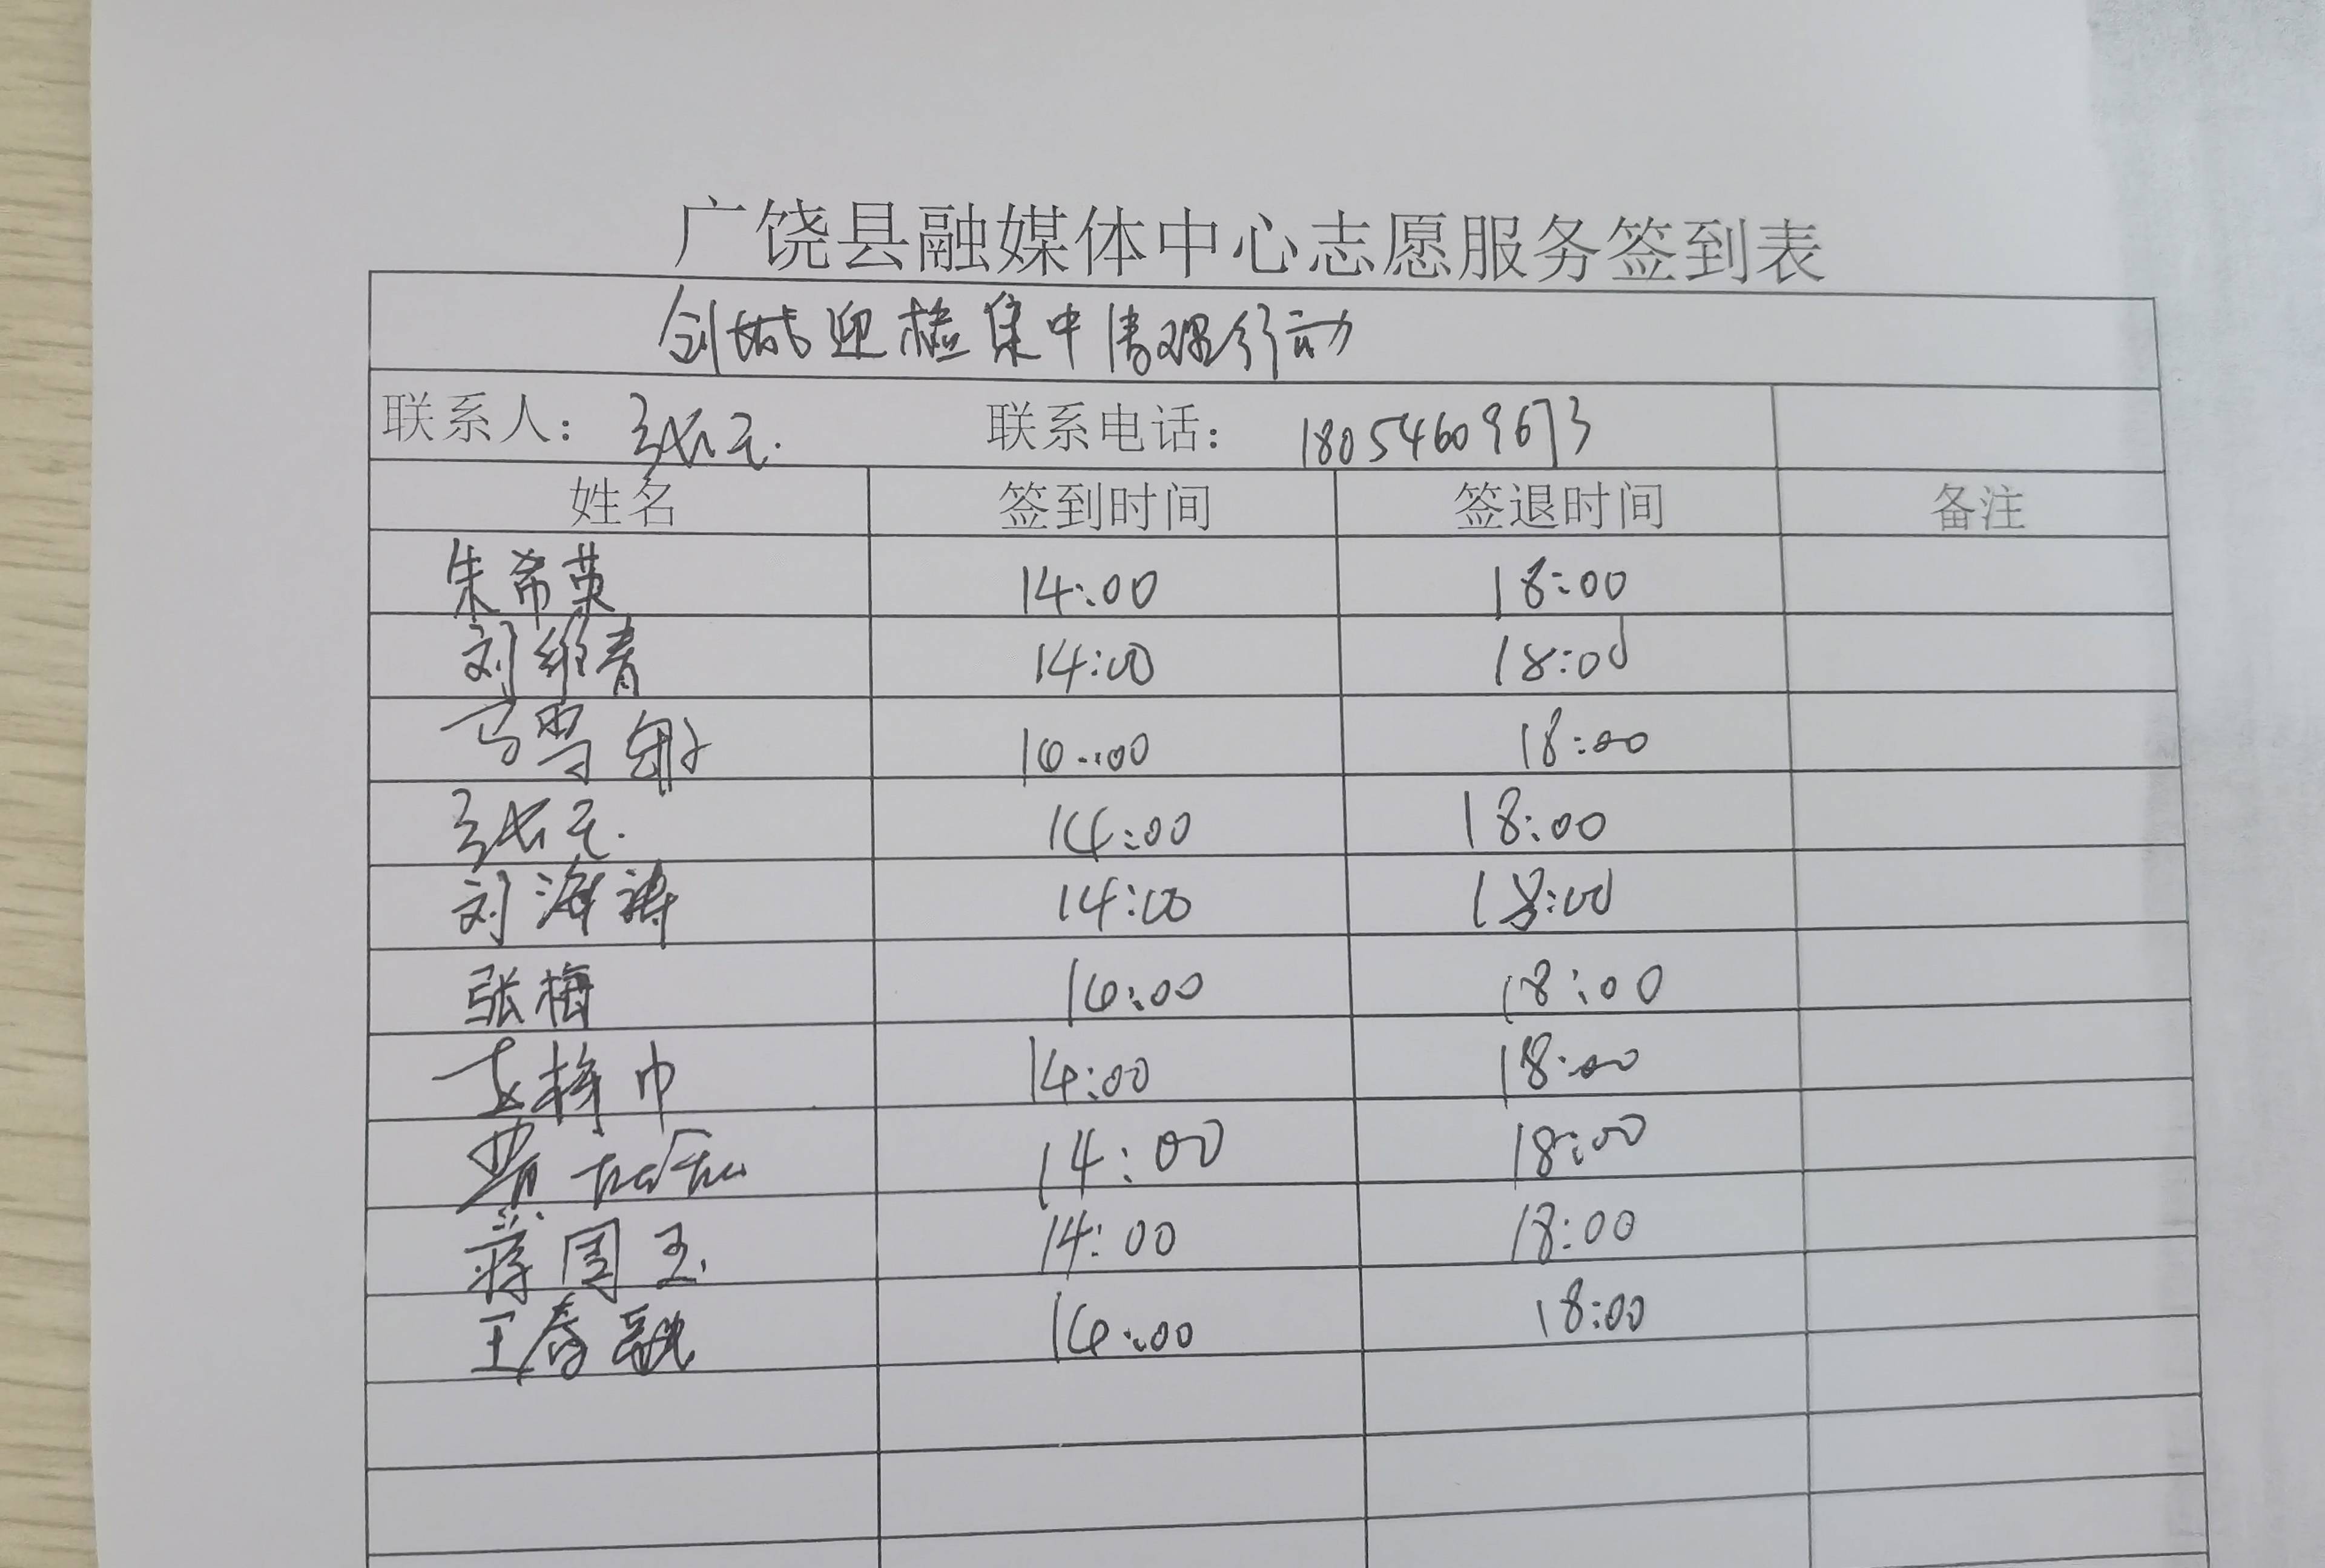 广饶县融媒体中心志愿服务签到表
创城迎检集中清理行动
联系人： 联系电话： 18054609673
姓名 签到时间 签退时间 备注
朱希英 14:00 18:00
刘维青 14:00 18:00
马雪 18:00
14:00 18:00
刘海涛 14:00 18:00
张梅 14:00 18:00
14:00 18:00
14:00 18:00
蒋国玉 14:00 18:00
王春融 14:00 18:00